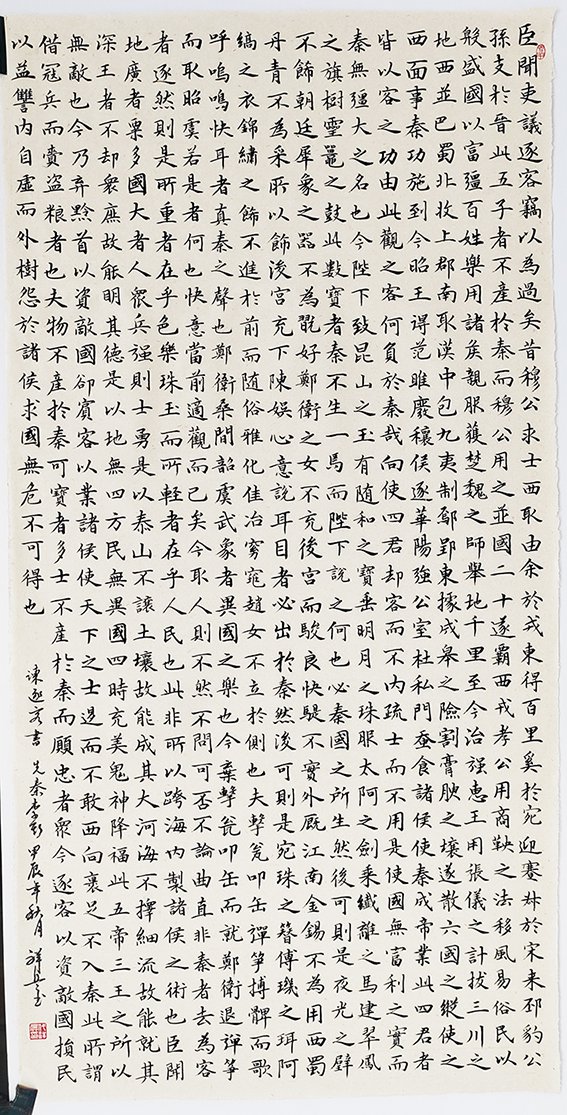 臣聞吏議逐客竊以為過矣昔穆公求士西取由余於戎東得百里奚於宛迎蹇叔於宋来邳豹公
孫支於晉此五子者不產於秦而穆公用之並國二十遂霸西戎孝公用商鞅之法移風易俗民以
殷盛國以富彊百姓樂用諸侯親服獲楚魏之師舉地千里至今治强惠王用張儀之計拔三川之
地西並巴蜀北收上郡南取漢中包九夷制鄢郢東據成皋之險割膏腴之壤遂散六國之縱使之
西面事秦功施到今昭王得范雎廢穰侯逐華陽強公室杜私門蚕食諸侯使秦成帝業此四君者
皆以客之功由此觀之客何負於秦哉向使四君却客而不內疏士而不用是使國無富利之實而
秦無彊大之名也今陛下致昆山之玉有随和之寶垂明月之珠服太阿之劍乘纖離之馬建翠鳳
之旗樹靈鼉之鼓此數寶者秦不生一焉而陛下說之何也必秦國之所生然後可則是夜光之璧
不飾朝廷犀象之器不為翫好鄭衛之女不充後宮而駿良快騠不實外厩江南金錫不為用西蜀
丹青不為采所以飾後宮充下陳娛心意說耳目者必出於秦然後可則是宛珠之簪傅璣之珥阿
縞之衣錦繡之飾不進於前而随俗雅化佳冶窈窕趙女不立於側也夫擊瓮叩缶彈箏搏髀而歌
呼嗚嗚快耳者真秦之聲也鄭衛桑間韶虞武象者異國之樂也今棄擊瓮叩缶而就鄭衛退彈箏
而取昭虞若是者何也快意當前適觀而已矣今取人則不然不問可否不論曲直非秦者去為客
者逐然則是所重者在乎色樂珠玉而所輕者在乎人民也此非所以跨海內製諸侯之術也臣聞
地廣者粟多國大者人眾兵强則士勇是以泰山不讓土壤故能成其大河海不擇細流故能就其
深王者不却衆庶故能明其德是以地無四方民無異國四時充美鬼神降福此五帝三王之所以
無敵也今乃弃黔首以資敵國卻賓客以業諸侯使天下之士退而不敢西向裹足不入秦此所謂
借寇兵而齎盜粮者也夫物不產於秦可寶者多士不產於秦而願忠者眾今逐客以資敵國損民
以益讐內自虛而外樹怨於諸侯求國無危不可得也
諫逐客書 先秦李斯 甲辰年秋月 祥